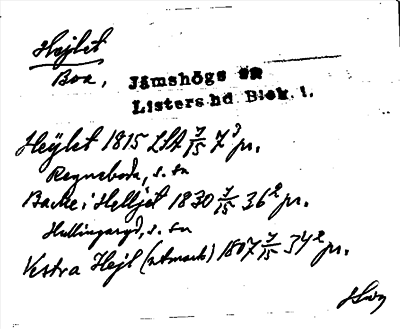 Hejlet
Boa,
Jämshögs sn
Listers hd. Blek. l.
Heÿlet 1815 LSA 7/15 7³ pr.
Regnaboda, s. sn
Backe i Helljet 1830 7/15 36² pr.
Hallingaryd, s. sn
Vestra Hejl (utmark) 1807 7/15 34² pr.